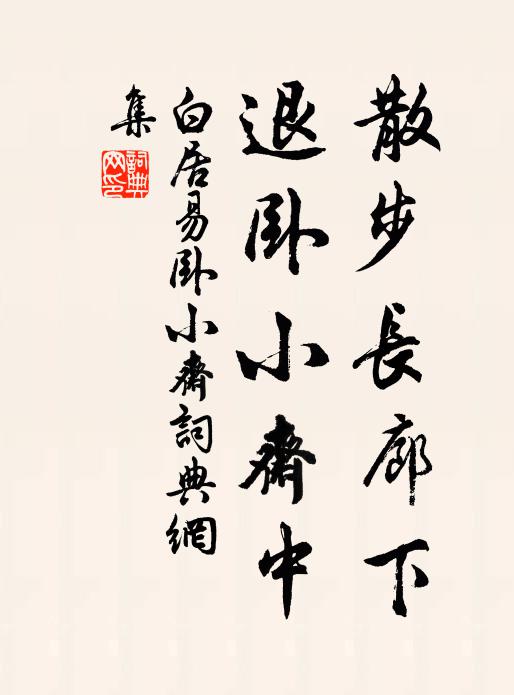 散步長廊下
退卧小齋中
白居易卧小齋詞典網
集
詞典
网印